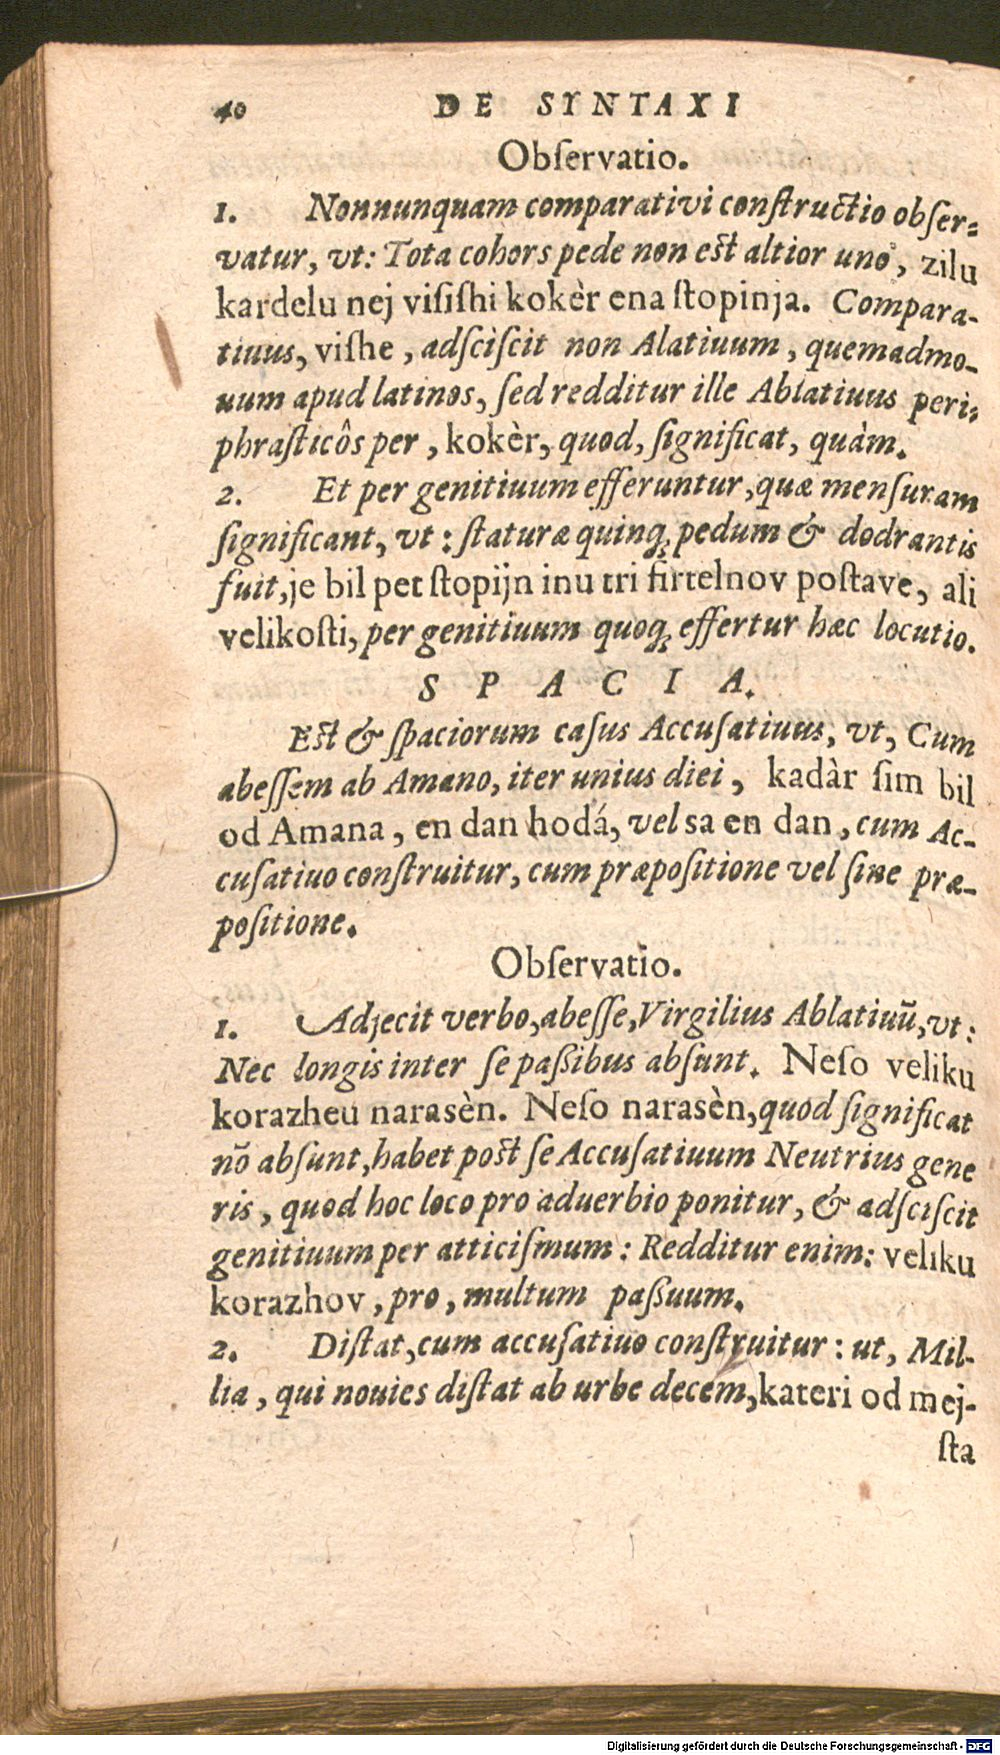 40 DE SYNTAXI
Obſervatio.
1. Nonnunquam comparativi conſtructio obſer-
vatur, vt: Tota cohors pede non eſt altior uno, zilu
kardelu nej viſiſhi kokèr ena ſtopinja. Compara-
tiuus, viſhe, adſciſcit non Alatiuum, quemadmo-
uum apud latinos, ſed redditur ille Ablatiuus peri-
phraſticôs per, kokèr, quod, ſignificat, quàm.
2. Et per genitiuum efferuntur, quæ menſuram
ſignificant, vt: ſtaturæ quinq; pedum & dodrantis
fuit, je bil pet ſtopijn inu tri firtelnov poſtave, ali
velikoſti, per genitiuum quoq; effertur hæc locutio.
SPACIA.
Eſt & ſpaciorum caſus Accuſatiuus, vt, Cum
abeſſem ab Amano, iter unius diei, kadàr ſim bil
od Amana, en dan hodá, vel sa en dan, cum Ac-
cuſatiuo conſtruitur, cum præpoſitione vel ſine præ-
poſitione.
Obſervatio.
1. Adjecit verbo, abeſſe, Virgilius Ablatiuũ, vt:
Nec longis inter ſe paßibus abſunt. Neſo veliku
korazheu narasèn. Neſo narasèn, quod ſignificat
nõ abſunt, habet poſt ſe Accuſatiuum Neutrius gene
ris, quod hoc loco pro aduerbio ponitur, & adſciſcit
genitiuum per atticiſmum: Redditur enim: veliku
korazhov, pro, multum paßuum.
2. Diſtat, cum accuſatiuo conſtruitur: ut, Mil-
lia, qui nouies diſtat ab urbe decem, kateri od mej-
ſta
Digitalisierung gefördert durch die Deutsche Forschungsgemeinschaft - DFG